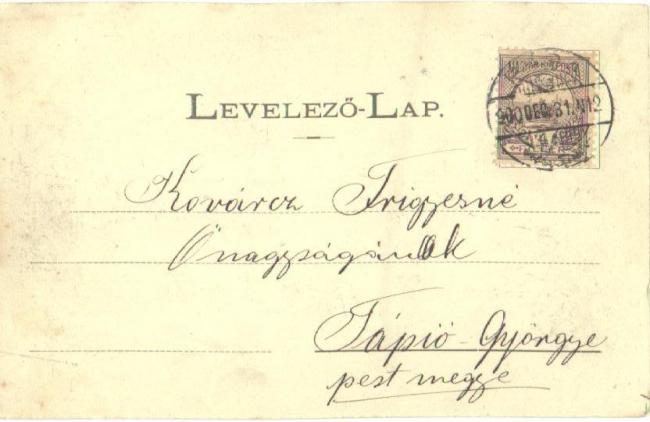 LEVELEZŐ-LAP.
900 DEC. 31. N12
Kovárcz Frigyesné
Önagyságának
Tápió-Györgye
pest megye